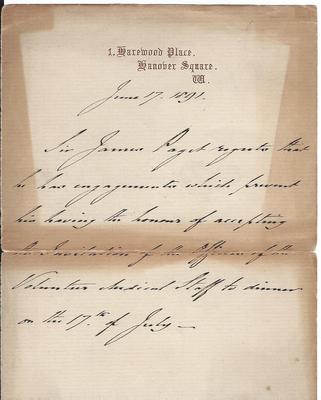 1, Harewood Place,
Hanover Square,
W.
June 17. 1891.
Sir James Paget regrets that
he has engagements which prevent
his having the honour of accepting
the Invitation of the Officers of the
Volunteer Medical Staff to dinner
on the 17th of July —